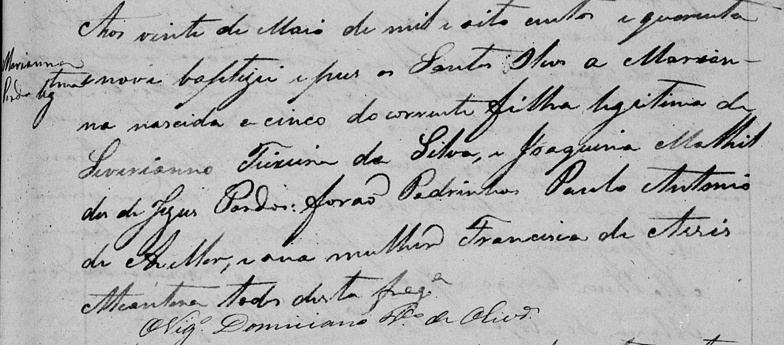 Aos vinte de Maio de mil e oito centos e quarenta
Marianna
e nove baptizei e puz os Santos Oleos a Marian-
Parda legtma
na nascida a cinco do corrente filha legitima de
Severianno Teixeira da Silva, e Joaquina Mathil
des de Jesus Pardos: forão Padrinhos Paulo Antonio
de, e sua mulher Francisca de Assis
Alcantara todos desta fregª
O Vigº Domiciano de Olivrª